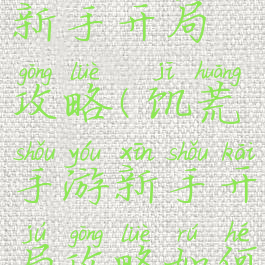 新手开局
gōng lüè jī huāng
攻略(饥荒
shǒu yóu xīn shǒu kāi
手游新手开
jú gōng lüè rú hé
局攻略如何